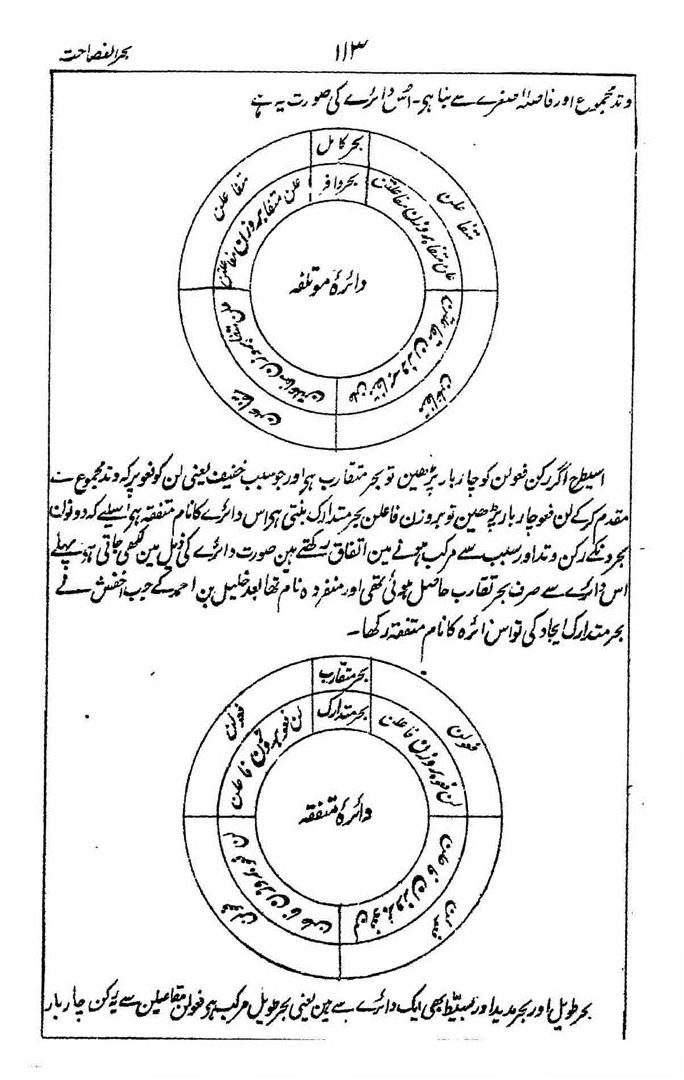 بحر الفصاحت
۱۱۳
وتد مجموع اور فاصلۂ صغرے سے بنا ہی۔ اس دائرے کی صورت یہ ہے
بحر کامل
بحر وافر
متفاعلن
علن متفا بروزن مفاعلتن
متفاعلن
علن متفا بروزن مفاعلتن
متفاعلن
علن متفا بروزن مفاعلتن
متفاعلن
علن متفا بروزن مفاعلتن
دائرۂ موتلفہ
اسیطرح اگر رکن فعولن کو چار بار پڑھین تو بحر متقارب ہی اور جو سبب خفیف یعنی لن کو فعو پر کہ وتد مجموع ہے
مقدم کر کے لن فعو چار بار پڑھین تو بروزن فاعلن بحر متدارک بنتی ہی اس دائرے کا نام متفقہ ہی اسلیے کہ دونون
بحرونکے رکن وتد اور سبب سے مرکب ہونے مین اتفاق رکھتے ہین صورت دائرے کی ذیل مین لکھی جاتی ہے پہلے
اس دائرے سے صرف بحر تقارب حاصل ہوئی تھی اور منفردہ نام تھا بعد خلیل بن احمد کے جب اخفش نے
بحر متدارک ایجاد کی تو اس دائرہ کا نام متفقہ رکھا۔
بحر متقارب
بحر متدارک
فعولن
لن فعو بروزن فاعلن
فعولن
لن فعو بروزن فاعلن
فعولن
لن فعو بروزن فاعلن
فعولن
لن فعو بروزن فاعلن
دائرۂ متفقہ
بحر طویل اور بحر مدید اور بسیط بھی ایک دائرے سے ہین یعنی بحر طویل مرکب ہی فعولن مفاعیلن سے یہ رکن چار بار